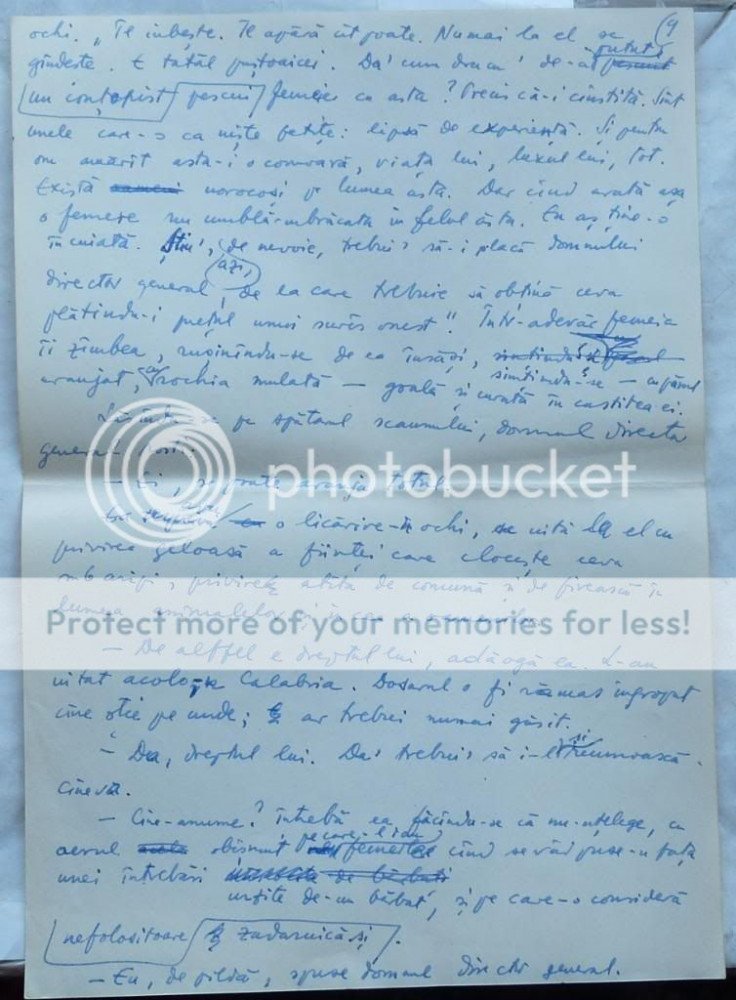 ochi. „Te iubește. Te apără cît poate. Numai la el se (9
gîndește. E tatăl puștoaicei. Da' cum dracu' de-a putut
un conțopist pescui femeie ca asta? Precis că-i cinstită. Sînt
unele care-s ca niște fetițe: lipsă de experiență. Și pentru
om amărît asta-i o comoară, viața lui, luxul lui, tot.
Există norocoși pe lumea asta. Dar cînd arată așa
o femeie nu umblă-mbrăcată în felul ăsta. Eu aș ține-o
încuiată. Știu, de nevoie, trebui' să-i placă domnului
azi,
director general, de la care trebuie să obțină ceva
plătindu-i prețul unui surîs onest". Într-adevăr femeia
îi zîmbea, rușinîndu-se de ea însăși,
simțindu-se – cu părul
aranjat, cu rochia mulată – goală și curată în castitatea ei.
pe spătarul scaunului, domnul director
general
– se poate aranja totul.
o licărire-n ochi, se uită la el cu
privirea geloasă a ființei care clocește ceva
sub aripi, privire atît de comună și de firească în
lumea animalelor și
– De altfel e dreptul lui, adăogă ea. L-au
uitat acolo, în Calabria. Dosarul o fi rămas îngropat
cine știe pe unde; ar trebui numai găsit.
– Da, dreptul lui. Da' trebui' să i-l și recunoască.
cineva.
– Cine-anume? întrebă ea, făcîndu-se că nu-nțelege, cu
aerul obișnuit pe care-l iau femeile cînd se văd puse-n fața
unei întrebări
ivite de-un bărbat, și pe care-o consideră
nefolositoare zadarnică și.
– Eu, de pildă, spuse domnul director general.
photobucket
Protect more of your memories for less!